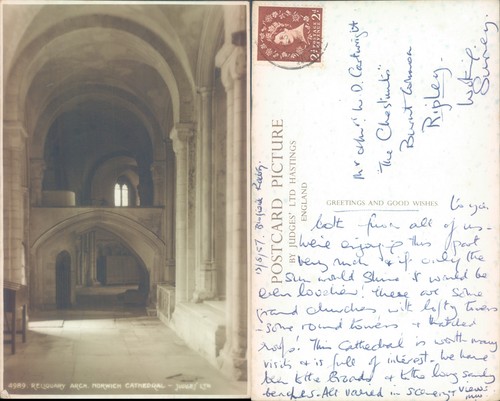 8989 RELIQUARY ARCH, NORWICH CATHEDRAL - JUDGES LTD
POSTCARD PICTURE
BY JUDGES' LTD HASTINGS
ENGLAND
Mr & Mrs W. D. Cartwright
"The Chestnuts"
Burnt Common
Ripley.
Surrey.
GREETINGS AND GOOD WISHES
to you
both from all of us.
We're enjoying this part
very much & if only the
sun would shine it would be
even lovelier! There are some
grand churches with lofty towers
- some round towers, & thatched
roofs! This Cathedral is worth many
visits & is full of interest. We have
been to the Broads & the long sandy
beaches. All varied in scenery & views